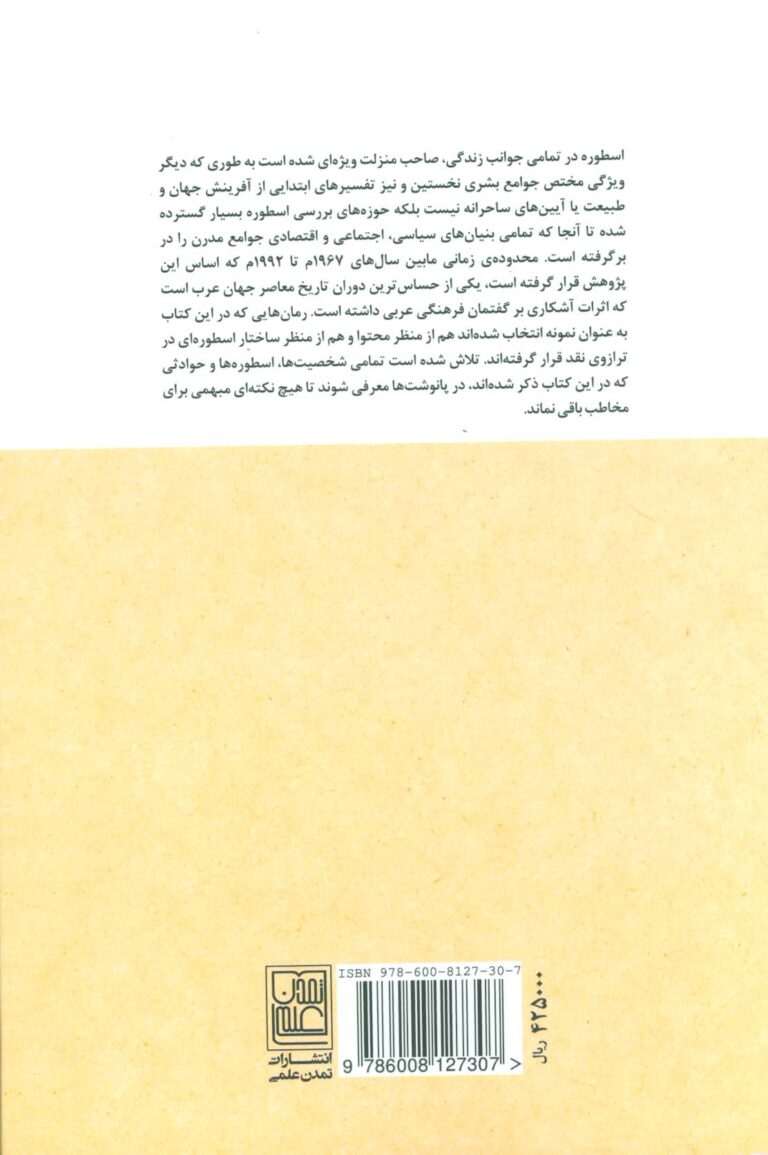 اسطوره در تمامی جوانب زندگی، صاحب منزلت ویژه‌ای شده است به طوری که دیگر
ویژگی مختص جوامع بشری نخستین و نیز تفسیرهای ابتدایی از آفرینش جهان و
طبیعت یا آیین‌های ساحرانه نیست بلکه حوزه‌های بررسی اسطوره بسیار گسترده
شده تا آنجا که تمامی بنیان‌های سیاسی، اجتماعی و اقتصادی جوامع مدرن را در
برگرفته است. محدوده‌ی زمانی مابین سال‌های ۱۹۶۷م تا ۱۹۹۲م که اساس این
پژوهش قرار گرفته است، یکی از حساس‌ترین دوران تاریخ معاصر جهان عرب است
که اثرات آشکاری بر گفتمان فرهنگی عربی داشته است. رمان‌هایی که در این کتاب
به عنوان نمونه انتخاب شده‌اند هم از منظر محتوا و هم از منظر ساختار اسطوره‌ای در
ترازوی نقد قرار گرفته‌اند. تلاش شده است تمامی شخصیت‌ها، اسطوره‌ها و حوادثی
که در این کتاب ذکر شده‌اند، در پانوشت‌ها معرفی شوند تا هیچ نکته‌ای مبهمی برای
مخاطب باقی نماند.
ISBN 978-600-8127-30-7
9 786008 127307 >
۴۲۵۰۰۰ ریال
تمدن علمی
انتشارات
تمدن علمی